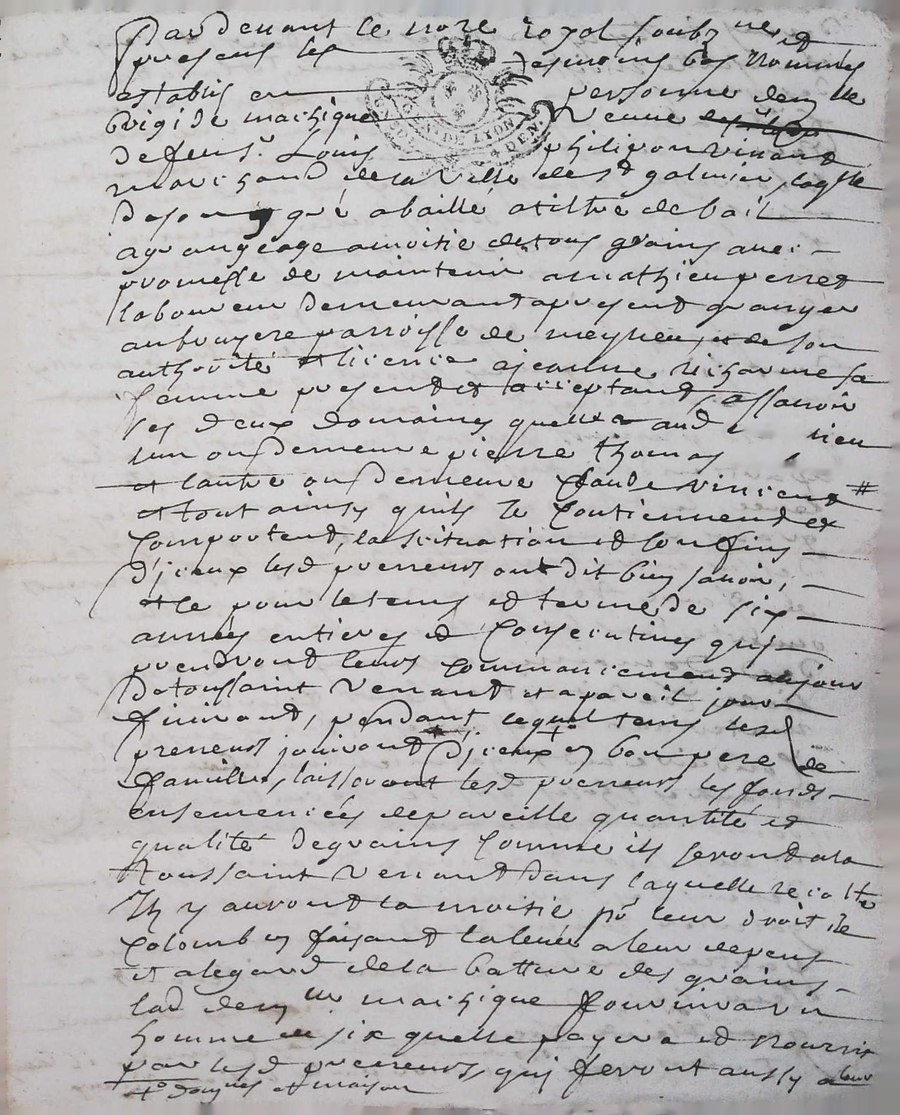 Par devant le nore royal soubzne et
presens les tesmoins bas nommés
establis en personne demlle
brigide machique veuve
de feu sr Louis philipon vivant
marchand de la ville de st galmier, laqlle
de son gré a baillé a tiltre de bail
a grangeage a moitié de tous grains avec
promesse de maintenir a mathieu perret
laboureur demeurant a present granger
au bruyere parroisse de meyrieu, et de son
authorité et licence a jeanne richarme sa
femme presente et acceptant, assavoir
ses deux domaines quelle a aud lieu
lun ou demeure pierre thomas
et lautre ou demeure Claude vincent #
et tout ainsy quils se Contiennent et
Comportent, la scituation et Confins
d'jceux lesd preneurs ont dit bien savoir,
et ce pour le tems et terme de six
années entieres et Consecutives quj
prendront leurs Commancement au jour
de toussaint venant et a pareil jour
finiront, pendant lequel tems lesd
preneurs jouiront d'jceux en bon pere de
famille, laisseront lesd preneurs les fonds
ensemencées de pareille quantité et
qualité de grains Comme ils seront a la
Toussaint venant dans laquelle recolte
Ils y auront la moitié pr leur droit de
Colomb en faisant la levée a leur depens
et a legard de la batture des grains
lad demlle machique fournira un
homme de six quelle payera et nourrir
par lesd preneurs, quj feront aussy a leur